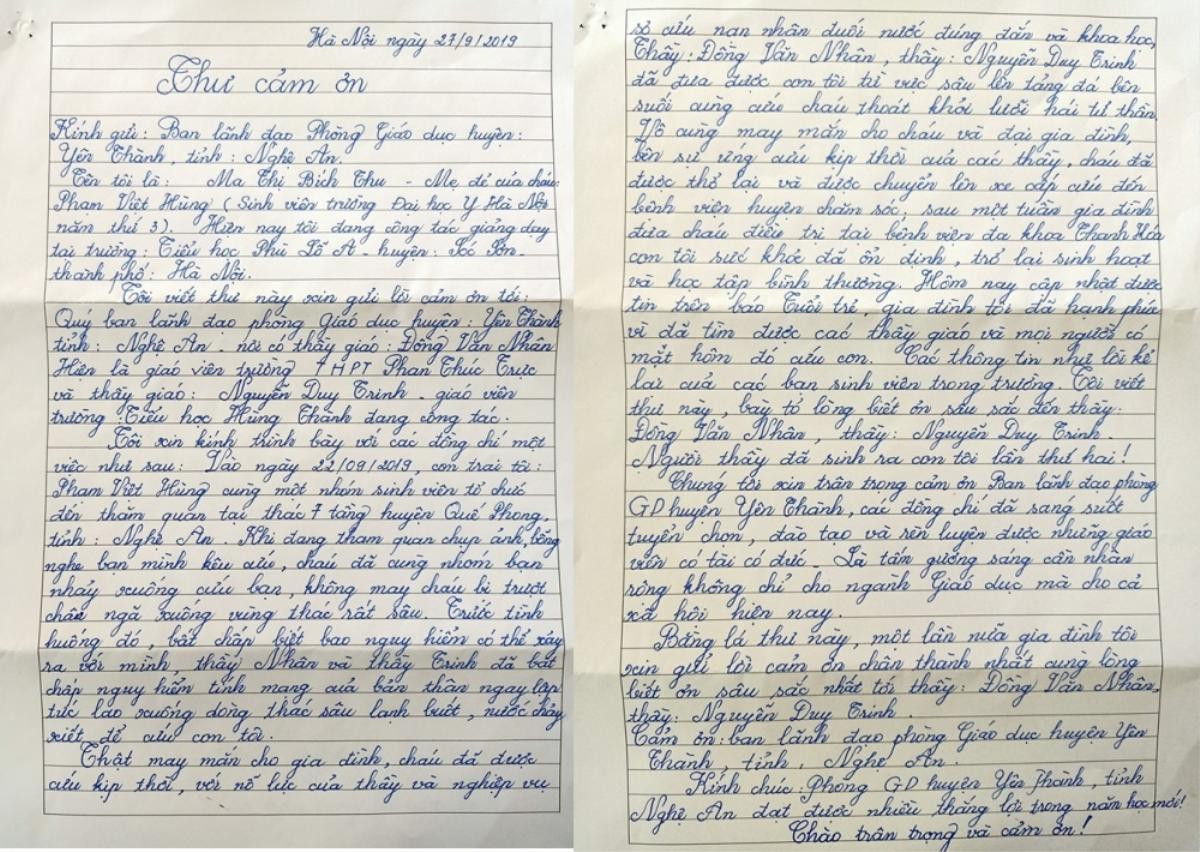 Hà Nội ngày 27/9/2019
Thư cảm ơn
Kính gửi: Ban lãnh đạo Phòng Giáo dục huyện:
Yên Thành, tỉnh: Nghệ An.
Tên tôi là: Ma Thị Bích Thu - Mẹ đẻ của cháu
Phạm Việt Hùng (Sinh viên trường Đại học Y Hà Nội
năm thứ 3). Hiện nay tôi đang công tác giảng dạy
tại trường: Tiểu học Phù Lỗ A - huyện: Sóc Sơn -
thành phố: Hà Nội.
Tôi viết thư này xin gửi lời cảm ơn tới:
Quý ban lãnh đạo phòng Giáo dục huyện: Yên Thành
tỉnh: Nghệ An - nơi có thầy giáo: Đồng Văn Nhân
Hiện là giáo viên trường THPT Phan Thúc Trực
và thầy giáo: Nguyễn Duy Trinh - giáo viên
trường Tiểu học Hùng Thành đang công tác.
Tôi xin kính trình bày với các đồng chí một
việc như sau: Vào ngày 22/09/2019, con trai tôi:
Phạm Việt Hùng cùng một nhóm sinh viên tổ chức
đến thăm quan tại thác 7 tầng huyện Quế Phong,
tỉnh: Nghệ An. Khi đang tham quan chụp ảnh, bỗng
nghe bạn mình kêu cứu, cháu đã cùng nhóm bạn
nhảy xuống cứu bạn, không may cháu bị trượt
chân ngã xuống vùng thác rất sâu. Trước tình
huống đó, bất chấp biết bao nguy hiểm có thể xảy
ra với mình thầy Nhân và thầy Trinh đã bất
chấp nguy hiểm tính mạng của bản thân ngay lập
tức lao xuống dòng thác sâu lạnh buốt, nước chảy
xiết để cứu con tôi.
Thật may mắn cho gia đình, cháu đã được
cứu kịp thời, với nỗ lực của thầy và nghiệp vụ
sơ cứu nạn nhân đuối nước đúng đắn và khoa học,
Thầy: Đồng Văn Nhân, thầy: Nguyễn Duy Trinh
đã đưa được con tôi từ vực sâu lên tảng đá bên
suối cùng cứu cháu thoát khỏi lưỡi hái tử thần.
Vô cùng may mắn cho cháu và đại gia đình,
bên sự ứng cứu kịp thời của các thầy, cháu đã
được thở lại và được chuyển lên xe cấp cứu đến
bệnh viện huyện chăm sóc, sau một tuần gia đình
đưa cháu điều trị tại bệnh viện đa khoa Thanh Hóa
con tôi sức khỏe đã ổn định, trở lại sinh hoạt
và học tập bình thường. Hôm nay cập nhật được
tin trên báo Tuổi trẻ, gia đình tôi đã hạnh phúc
vì đã tìm được các thầy giáo và mọi người có
mặt hôm đó cứu con. Các thông tin như lời kể
lại của các bạn sinh viên trong trường. Tôi viết
thư này, bày tỏ lòng biết ơn sâu sắc đến thầy:
Đồng Văn Nhân, thầy: Nguyễn Duy Trinh.
Người thầy đã sinh ra con tôi lần thứ hai!
Chúng tôi xin trân trọng cảm ơn Ban lãnh đạo phòng
GD huyện Yên Thành, các đồng chí đã sáng suốt
tuyển chọn, đào tạo và rèn luyện được những giáo
viên có tài có đức. Là tấm gương sáng cần nhân
rộng không chỉ cho ngành Giáo dục mà cho cả
xã hội hiện nay.
Bằng lá thư này, một lần nữa gia đình tôi
xin gửi lời cảm ơn chân thành nhất cùng lòng
biết ơn sâu sắc nhất tới thầy: Đồng Văn Nhân,
thầy: Nguyễn Duy Trinh.
Cảm ơn: ban lãnh đạo phòng Giáo dục huyện Yên
Thành, tỉnh: Nghệ An.
Kính chúc: Phòng GD huyện Yên Thành, tỉnh
Nghệ An đạt được nhiều thắng lợi trong năm học mới!
Chào trân trọng và cảm ơn!